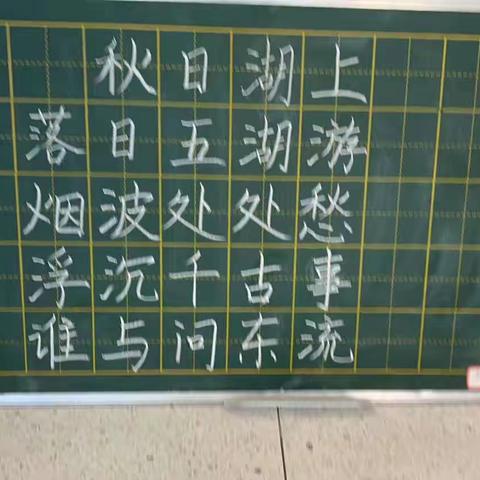 秋日湖上
落日五湖游
烟波处处愁
浮沉千古事
谁与问东流